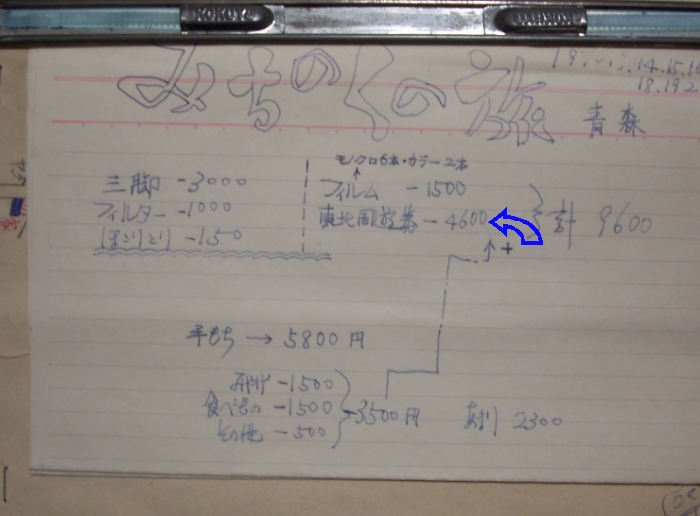 KOKUYO
みちのくの旅
14.15.16
18.19.2
青森
モノクロ6本・カラー2本
三脚 -3000
フィルム -1500
フィルター -1000
東北周遊券 -4600
計 9600
ほこりとり -150
+
手もち → 5800円
-1500
食べもの -1500
-3500円
その他 -500
あまり 2300